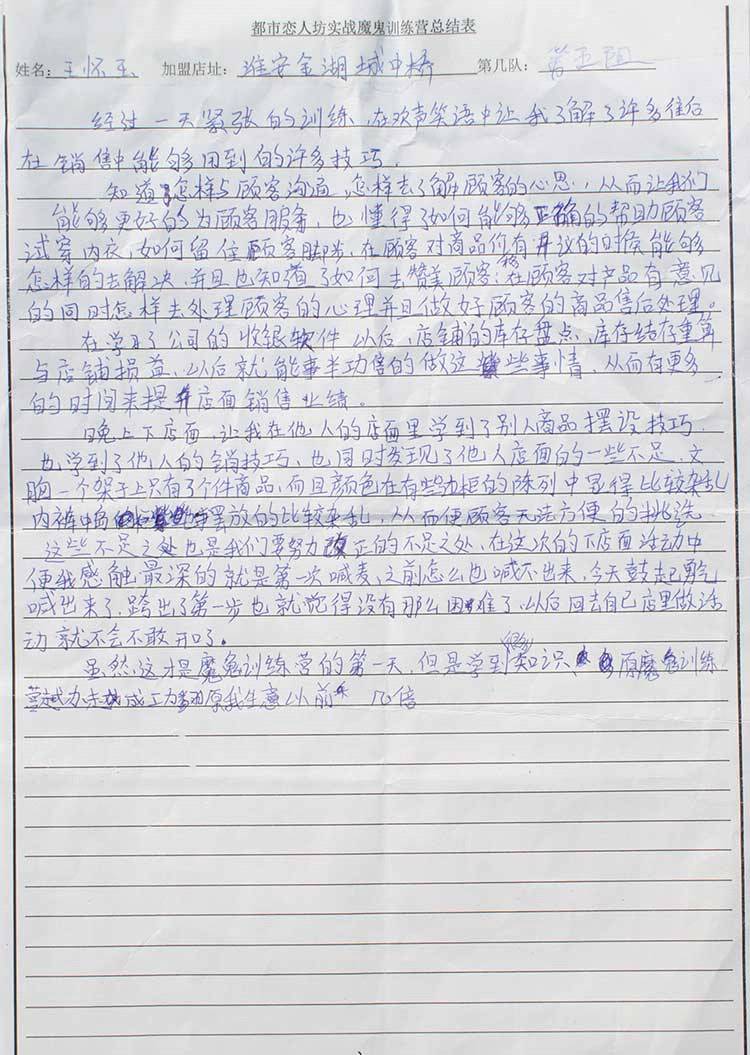 都市恋人坊实战魔鬼训练营总结表
姓名：王怀玉 加盟店址：淮安金湖城中桥 第几队：第五组
经过一天紧张的训练，在欢声笑语中让我了解了许多往后
在销售中能够用到的许多技巧．
知道怎样与顾客沟通，怎样去了解顾客的心思，从而让我们
能够更好的为顾客服务，也懂得了如何能够正确的帮助顾客
试穿内衣，如何留住顾客脚步，在顾客对商品价有异议的时候能够
怎样的去解决，并且也知道了如何去赞美顾客；在顾客对产品有意见
的同时怎样去处理顾客的心理并且做好顾客的商品售后处理。
在学习了公司的收银软件以后，店铺的库存盘点，库存结存重算
与店铺损益，以后就能事半功倍的做这些事情，从而有更多
的时间来提升店面销售业绩。
晚上下店面，让我在他人的店面里学到了别人商品摆设技巧．
也学到了他人的销技巧，也同时发现了他人店面的一些不足，文
胸一个架子上只有了个件商品，而且颜色在有些边框的陈列中显得比较杂乱
内裤中岛摆放的比较杂乱，从而使顾客无法方便的挑选
这些不足之处也是我们要努力改正的不足之处，在这次的下店面活动中
使我感触最深的就是第一次喊麦，之前怎么也喊不出来，今天鼓起勇气
喊出来了，跨出了第一步也就觉得没有那么困难了，以后回去自己店里做活
动就不会不敢开口了。
虽然，这才是魔鬼训练营的第一天，但是学到很多知识，原魔鬼训练
营越办越成功，原我生意以前 几倍